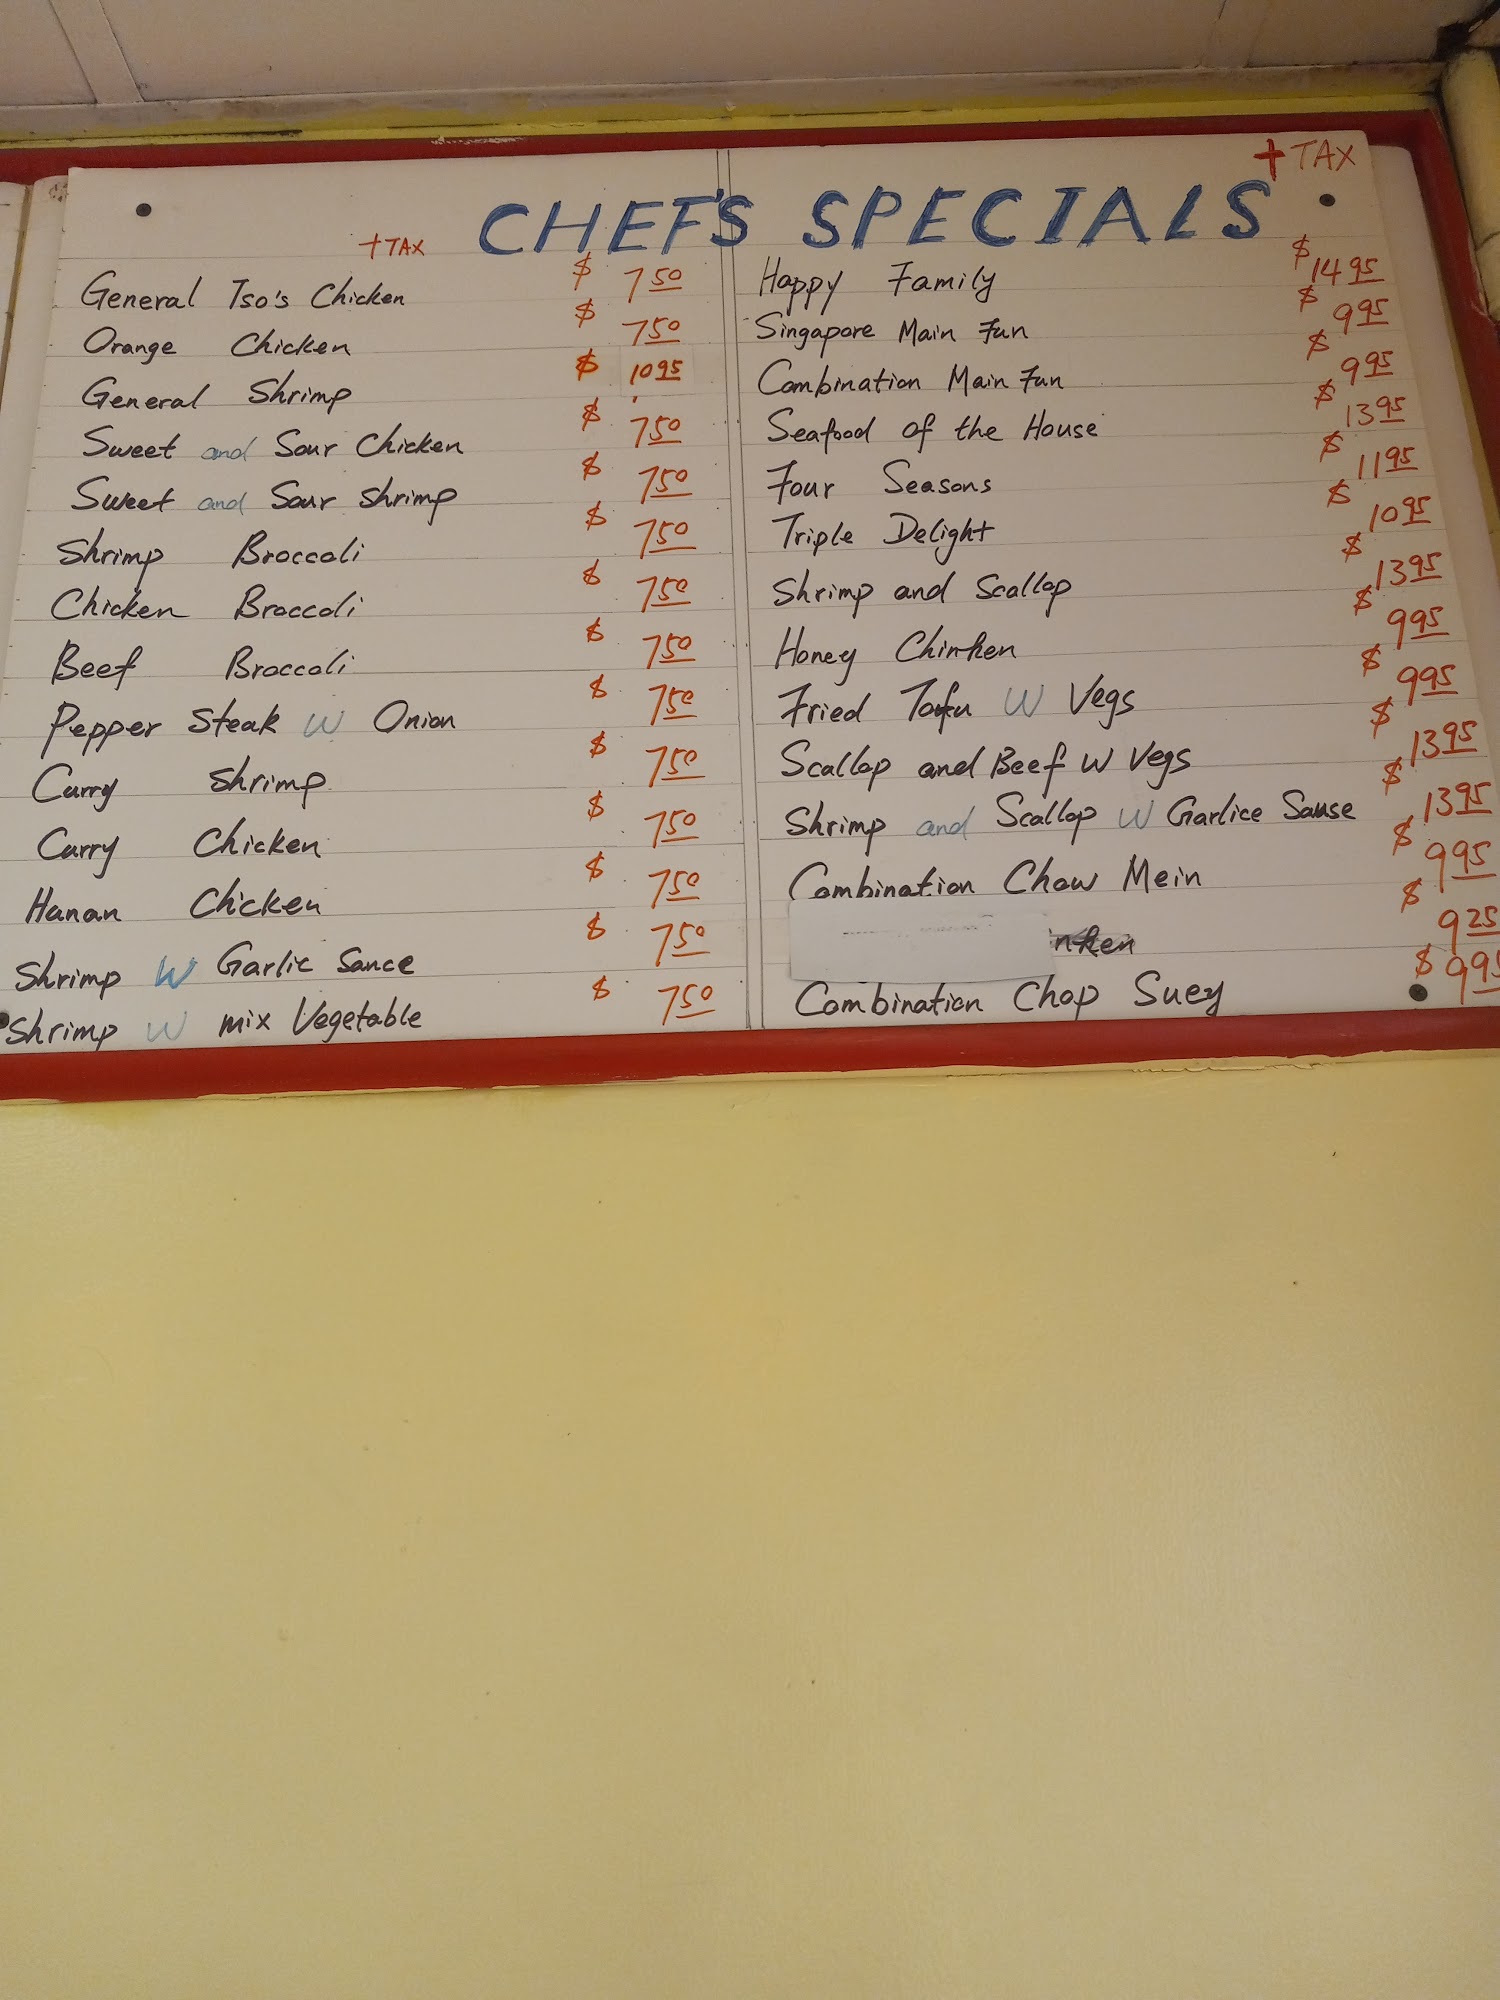 + TAX
CHEF'S SPECIALS
+ TAX
General Tso's Chicken $ 7.50
Orange Chicken $ 7.50
General Shrimp $ 10.95
Sweet and Sour Chicken $ 7.50
Sweet and Sour Shrimp $ 7.50
Shrimp Broccoli $ 7.50
Chicken Broccoli $ 7.50
Beef Broccoli $ 7.50
Pepper Steak W Onion $ 7.50
Curry Shrimp $ 7.50
Curry Chicken $ 7.50
Hunan Chicken $ 7.50
Shrimp W Garlic Sauce $ 7.50
Shrimp W mix Vegetable $ 7.50
Happy Family $ 14.95
Singapore Main Fun $ 9.95
Combination Main Fun $ 9.95
Seafood of the House $ 13.95
Four Seasons $ 11.95
Triple Delight $ 10.95
Shrimp and Scallop $ 13.95
Honey Chinken $ 9.95
Fried Toufu W Vegs $ 9.95
Scallop and Beef W Vegs $ 13.95
Shrimp and Scallop W Garlice Sause $ 13.95
Combination Chow Mein $ 9.95
$ 9.25
Combination Chop Suey $ 9.95